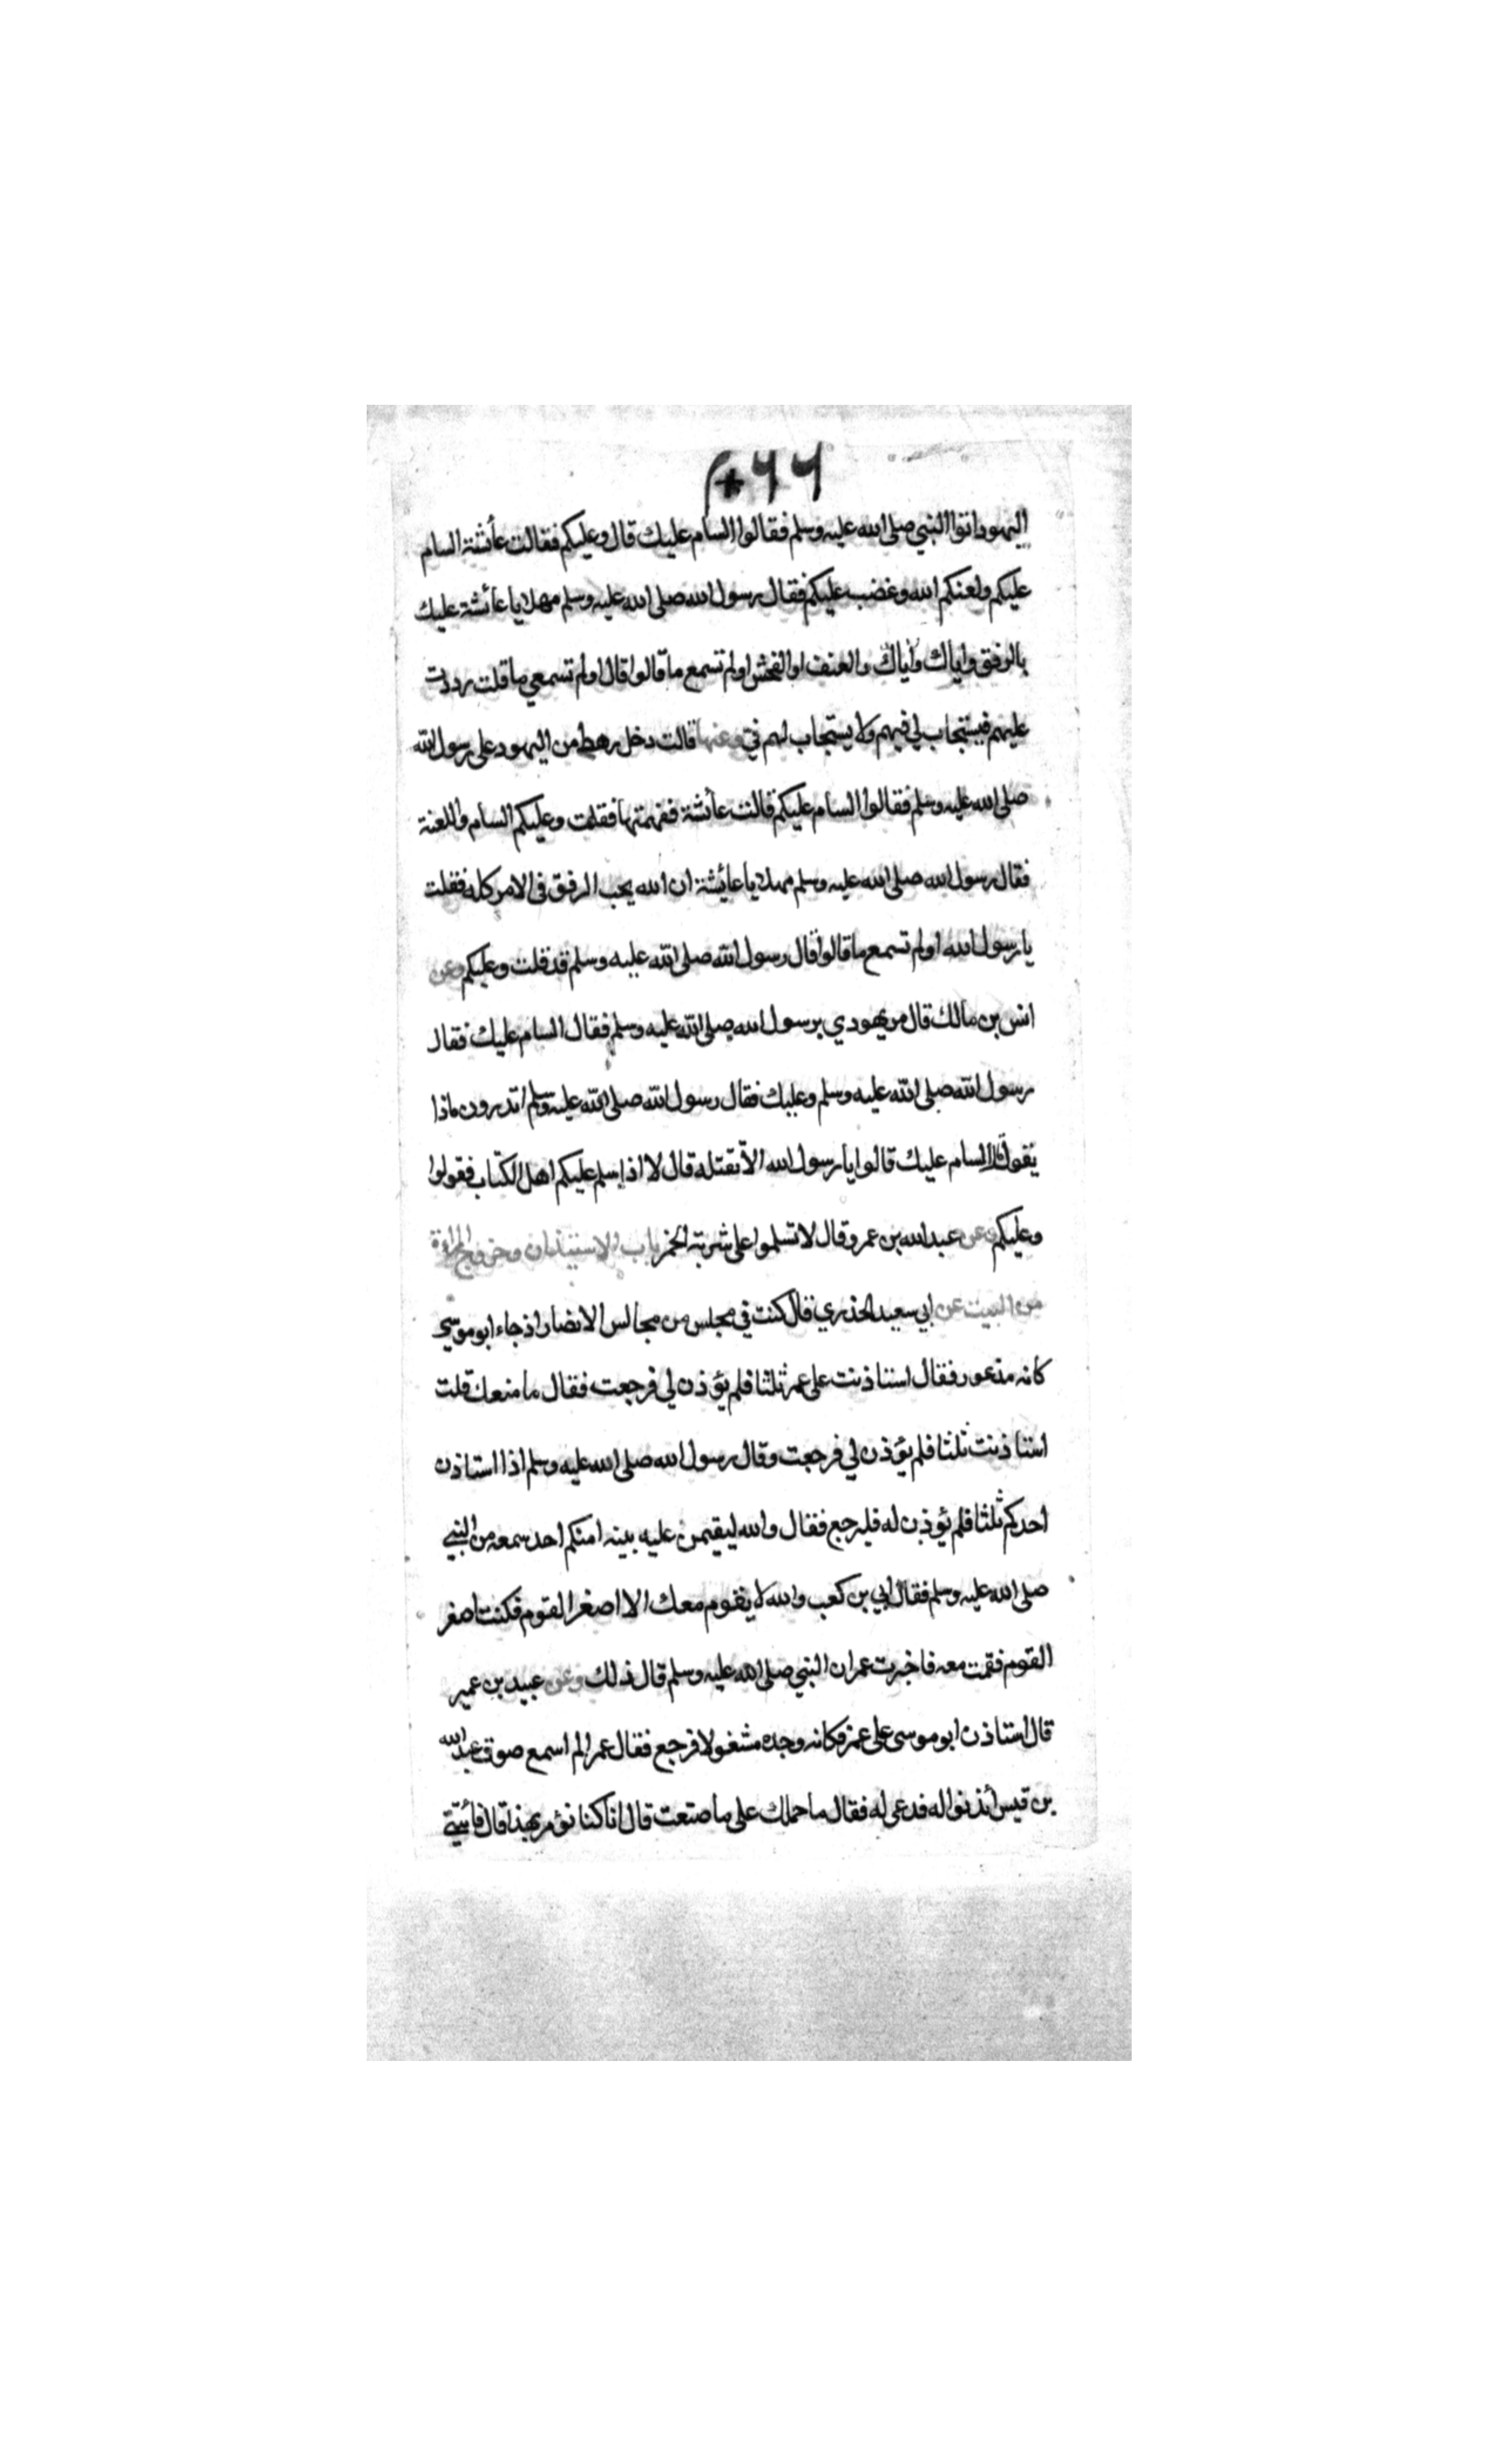 اليهود اتوا النبي صلى الله عليه وسلم فقالوا السام عليك قال وعليكم فقالت عائشة السام
عليكم ولعنكم الله وغضب عليكم فقال رسول الله صلى الله عليه وسلم مهلا يا عائشة عليك
بالرفق واياك واياك والعنف او الفحش اولم تسمع ما قالوا قال اولم تسمعي ما قلت رددت
عليهم فيستجاب لي فيهم ولا يستجاب لهم في وعنها قالت دخل رهط من اليهود على رسول الله
صلى الله عليه وسلم فقالوا السام عليكم قالت عائشة ففهمتها فقلت وعليكم السام واللعنة
فقال رسول الله صلى الله عليه وسلم مهلا يا عايشة ان الله يحب الرفق فى الامر كله فقلت
يا رسول الله اولم تسمع ما قالوا قال رسول الله صلى الله عليه وسلم قد قلت وعليكم وعن
انس بن مالك قال مر يهودي برسول الله صلى الله عليه وسلم فقال السام عليك فقال
رسول الله صلى الله عليه وسلم وعليك فقال رسول الله صلى الله عليه وسلم اتدرون ماذا
يقول قال السام عليك قالوا يا رسول الله الا نقتله قال لا اذا سلم عليكم اهل الكتاب فقولوا
وعليكم وعن عبد الله بن عمرو قال لا تسلموا على شربة الخمر باب الاستيذان وخروج المراة
من البيت عن ابي سعيد الخذري قال كنت في مجلس من مجالس الانصار اذ جاء ابو موسى
كانه مذعور فقال استاذنت على عمر ثلثا فلم يؤذن لي فرجعت فقال ما منعك قلت
استاذنت ثلثا فلم يؤذن لي فرجعت وقال رسول الله صلى الله عليه وسلم اذا استاذن
احدكم ثلثا فلم يؤذن له فليرجع فقال والله ليقيمن عليه بينه امنكم احد سمعه من النبي
صلى الله عليه وسلم فقال ابي بن كعب والله لا يقوم معك الا اصغر القوم فكنت اصغر
القوم فقمت معه فاخبرت عمر ان النبي صلى الله عليه وسلم قال ذلك وعن عبيد بن عمير
قال استاذن ابو موسى على عمر فكانه وجده مشغولا فرجع فقال عمر الم اسمع صوت عبد الله
بن قيس ائذنوا له فدعى له فقال ما حملك على ما صنعت قال انا كنا نؤمر بهذا قال فأتني